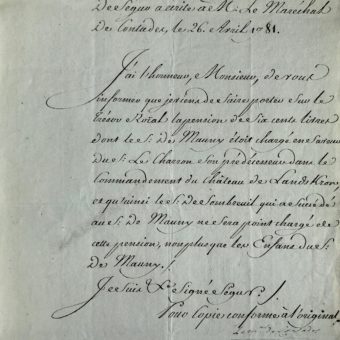 De Ségur a écrite à M. Le Maréchal
De Contades, le 26. Avril 1781.
J'ai l'honneur, Monsieur, de vous
informer que je viens de faire porter sur le
Trésor Roïal la pension de six cents livres
dont le S. de Mauny étoit chargé en faveur
du S. Les Charron son prédécesseur dans le
Commandement du Château de Landskron,
et qu'ainsi le S. de Sombreuil qui a succédé
au S. De Mauny ne sera point chargé de
cette pension, non plus que les Enfans du S.
De Mauny./.
Je suis & Signé Ségur./.
Pour Copie conforme à l'original